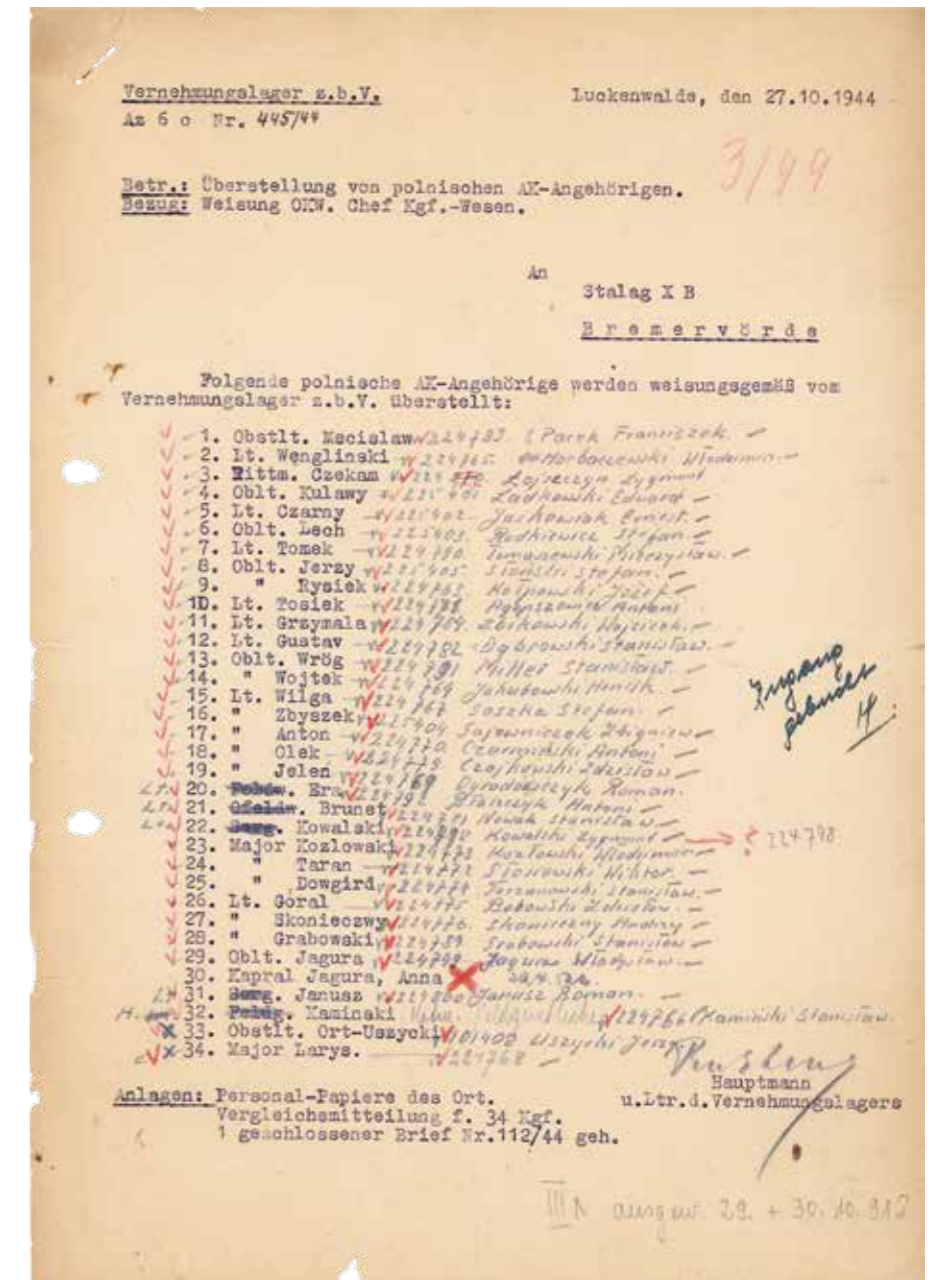 Vernehmungslager z.b.V.
Luckenwalde, den 27.10.1944
Az 6 c Nr. 445/44
3/99
Betr.: Überstellung von polnischen AK-Angehörigen.
Bezug: Weisung OKW. Chef Kgf.-Wesen.
An
Stalag X B
Bremervörde
Folgende polnische AK-Angehörige werden weisungsgemäß vom
Vernehmungslager z.b.V. überstellt:
1. Obstlt. Macislaw Parek Franciszek.
2. Lt. Wenglinski 224765
3. Rittm. Czekam Zygmunt
4. Oblt. Kulawy Zadkowski Edward
5. Lt. Czarny 225402 Jaskowiak Ernest.
6. Oblt. Lech 225403 Rodkiewicz Stefan.
7. Lt. Tomek 224780 Tumanowski Mieczysław.
8. Oblt. Jerzy 225405 Stefan.
9. " Rysiek Józef
10. Lt. Tosiek Antoni
11. Lt. Grzymala Zbikowski Wojciech.
12. Lt. Gustav 224782 Dąbrowski Stanisław.
13. Oblt. Wróg 224791 Miller Stanisław.
14. " Wojtek 224769 Jakubowski Henryk
15. Lt. Wilga 224767 Soszka Stefan.
16. " Zbyszek 225404 Sajewniczek Zbigniew
17. " Anton 224770 Antoni
18. " Olek 224779 Czajkowski Zdzisław
19. " Jelen Ogrodowczyk Roman.
Lt. 20. Era Antoni
Lt. 21. Brunet Nowak Stanisław
Lt. 22. Serg. Kowalski Kowalski Zygmunt ? 224798
23. Major Kozlowski 224773 Kozłowski Włodzimierz
24. " Taran 224772 Wiktor.
25. " Dowgird Tarzanowski Stanisław.
26. Lt. Goral 224775 Bobowski Zdzisław.
27. " Skonieczwy 224776 Skonieczny Andrzej
28. " Grabowski 224789 Grabowski Stanisław
29. Oblt. Jagura 224799 Jagura Władysław
30. Kapral Jagura, Anna
Lt 31. Serg. Janusz 224800 Janusz Roman.
32. Feldw. Kaminski 224766 Kamiński Stanisław.
33. Obstlt. Ort-Uszycki 101400 Uszycki Jerzy
34. Major Larys. 224768
Zugang
gebucht
H
Hauptmann
u.Ltr.d.Vernehmungslagers
Anlagen: Personal-Papiere des Ort.
Vergleichsmitteilung f. 34 Kgf.
1 geschlossener Brief Nr.112/44 geh.
29. + 30. 10.